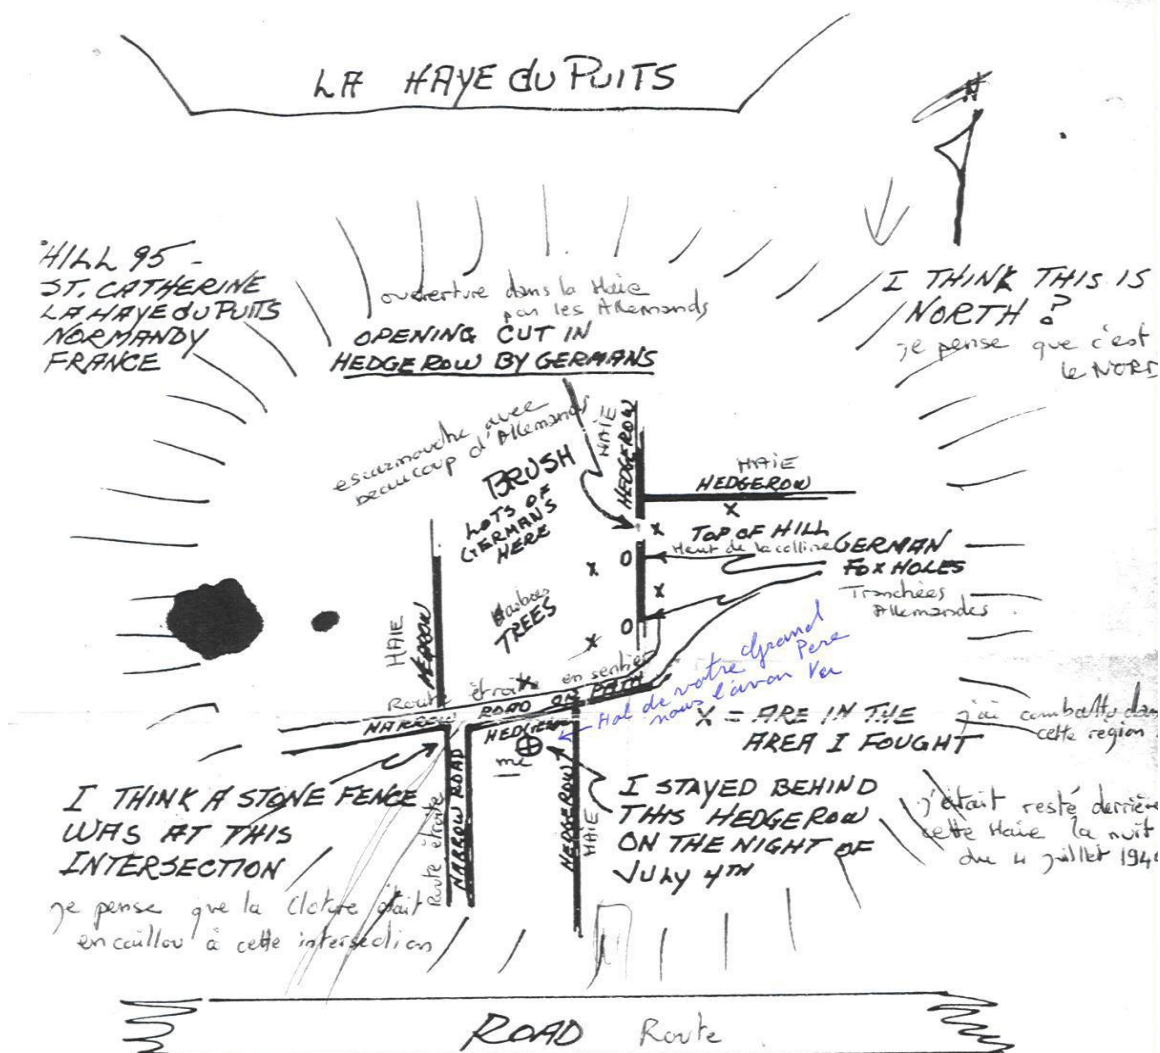 LA HAYE du PUITS
N
HILL 95 -
ST. CATHERINE
LA HAYE du PUITS
NORMANDY
FRANCE
ouverture dans la Haie
par les Allemands
OPENING CUT IN
HEDGEROW BY GERMANS
I THINK THIS IS
NORTH ?
je pense que c'est
le NORD
escarmouche avec
beaucoup d'Allemands
BRUSH
LOTS OF
GERMANS
HERE
HAIE
HEDGEROW
HAIE
HEDGEROW
X
X
TOP OF HILL
Haut de la colline
GERMAN
FOX HOLES
Tranchées
Allemandes
O
X
X
O
arbres
TREES
X
HAIE
X
Route étroite en sentier
NARROW ROAD OR PATH
Hal de votre Grand
Pere
nous l'avon Vu
HAIE
me
X = ARE IN THE
AREA I FOUGHT
j'ai combattu dans
cette région
I THINK A STONE FENCE
WAS AT THIS
INTERSECTION
je pense que la Cloture était
en caillou à cette intersection
Route étroite
NARROW ROAD
HEDGEROW
HAIE
I STAYED BEHIND
THIS HEDGEROW
ON THE NIGHT OF
JULY 4TH
j'était resté derrière
cette Haie la nuit
du 4 juillet 194
ROAD Route